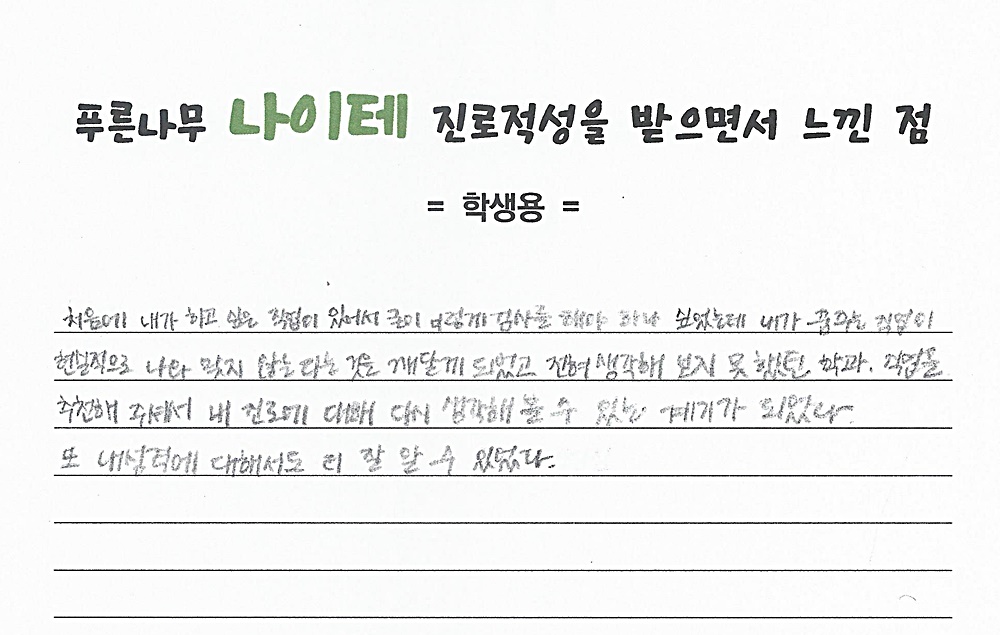 푸른나무 나이테 진로적성을 받으면서 느낀 점
= 학생용 =
처음에 내가 하고 싶은 직업이 있어서 굳이 이렇게 검사를 해야 하나 싶었는데 내가 꿈꾸는 직업이
현실적으로 나와 맞지 않는 다는 것을 깨달게 되었고 전혀 생각해 보지 못 했던 학과, 직업을
추천해 주셔서 내 진로에 대해 다시 생각해 볼 수 있는 계기가 되었다.
또 내성격에 대해서도 더 잘 알 수 있었다.